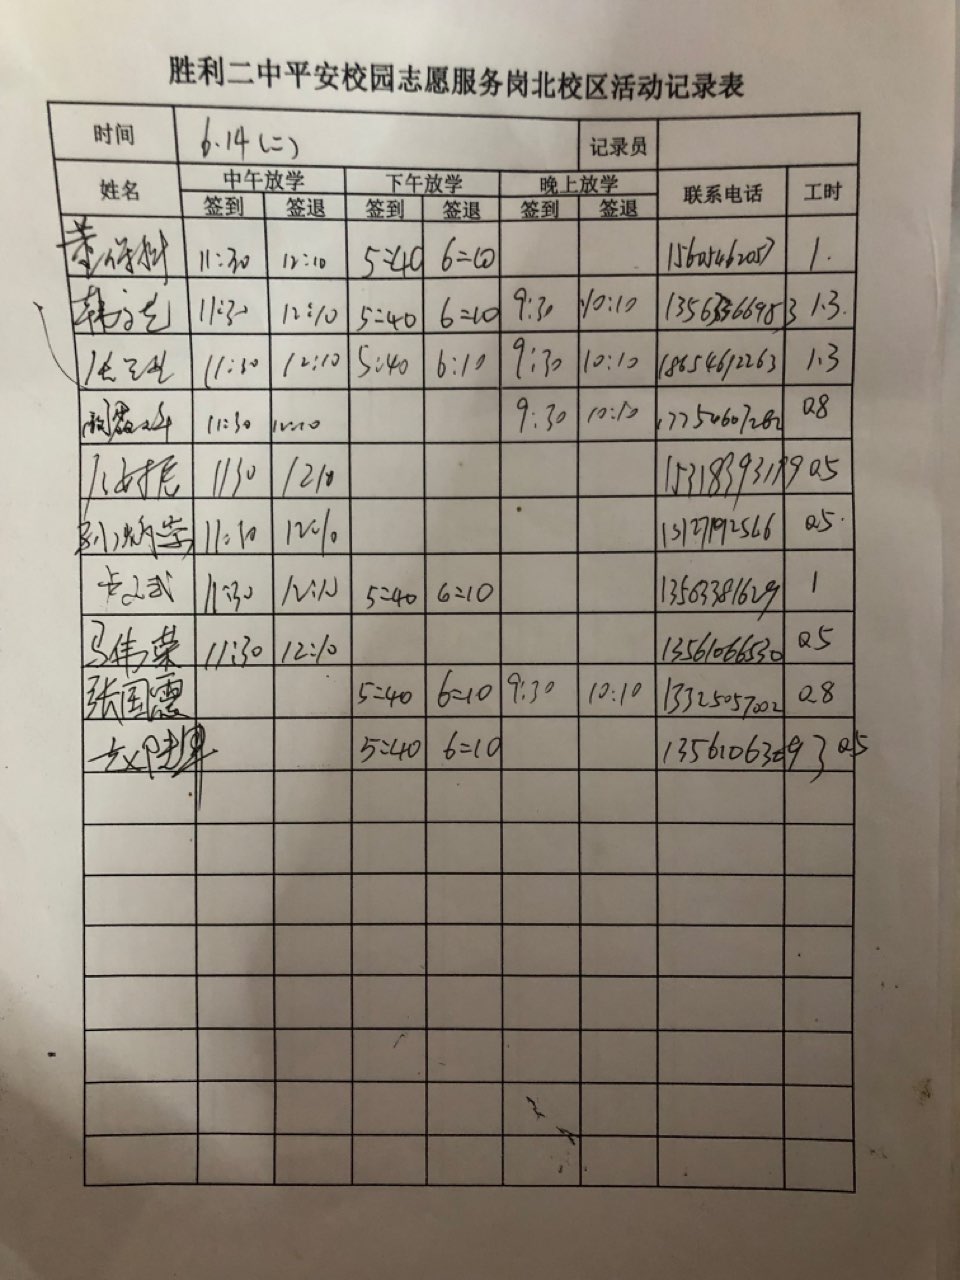 胜利二中平安校园志愿服务岗北校区活动记录表
时间 6.14(二) 记录员
姓名 中午放学 下午放学 晚上放学 联系电话 工时
签到 签退 签到 签退 签到 签退
11:30 12:10 5=40 6=10 15605462057 1.
11:30 12:10 5=40 6=10 9:30 10:10 1.3.
11:30 12:10 5:40 6:10 9:30 10:10 18654612263 1.3
11:30 12:10 9:30 10:10 0.8
1130 1210 0.5
11:30 12:10 0.5.
卞文武 11:30 12:10 5=40 6=10 13563381629 1
马伟荣 11:30 12:10 13561066530 0.5
张国惠 5=40 6=10 9:30 10:10 13325057002 0.8
5=40 6=10 0.5